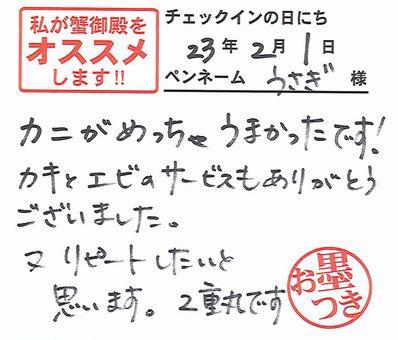 私が蟹御殿を
オススメ
します!!
チェックインの日にち
23年2月1日
ペンネーム うさぎ 様
カニがめっちゃうまかったです!
カキとエビのサービスもありがとう
ございました。
又リピートしたいと
思います。2重丸です
お墨つき